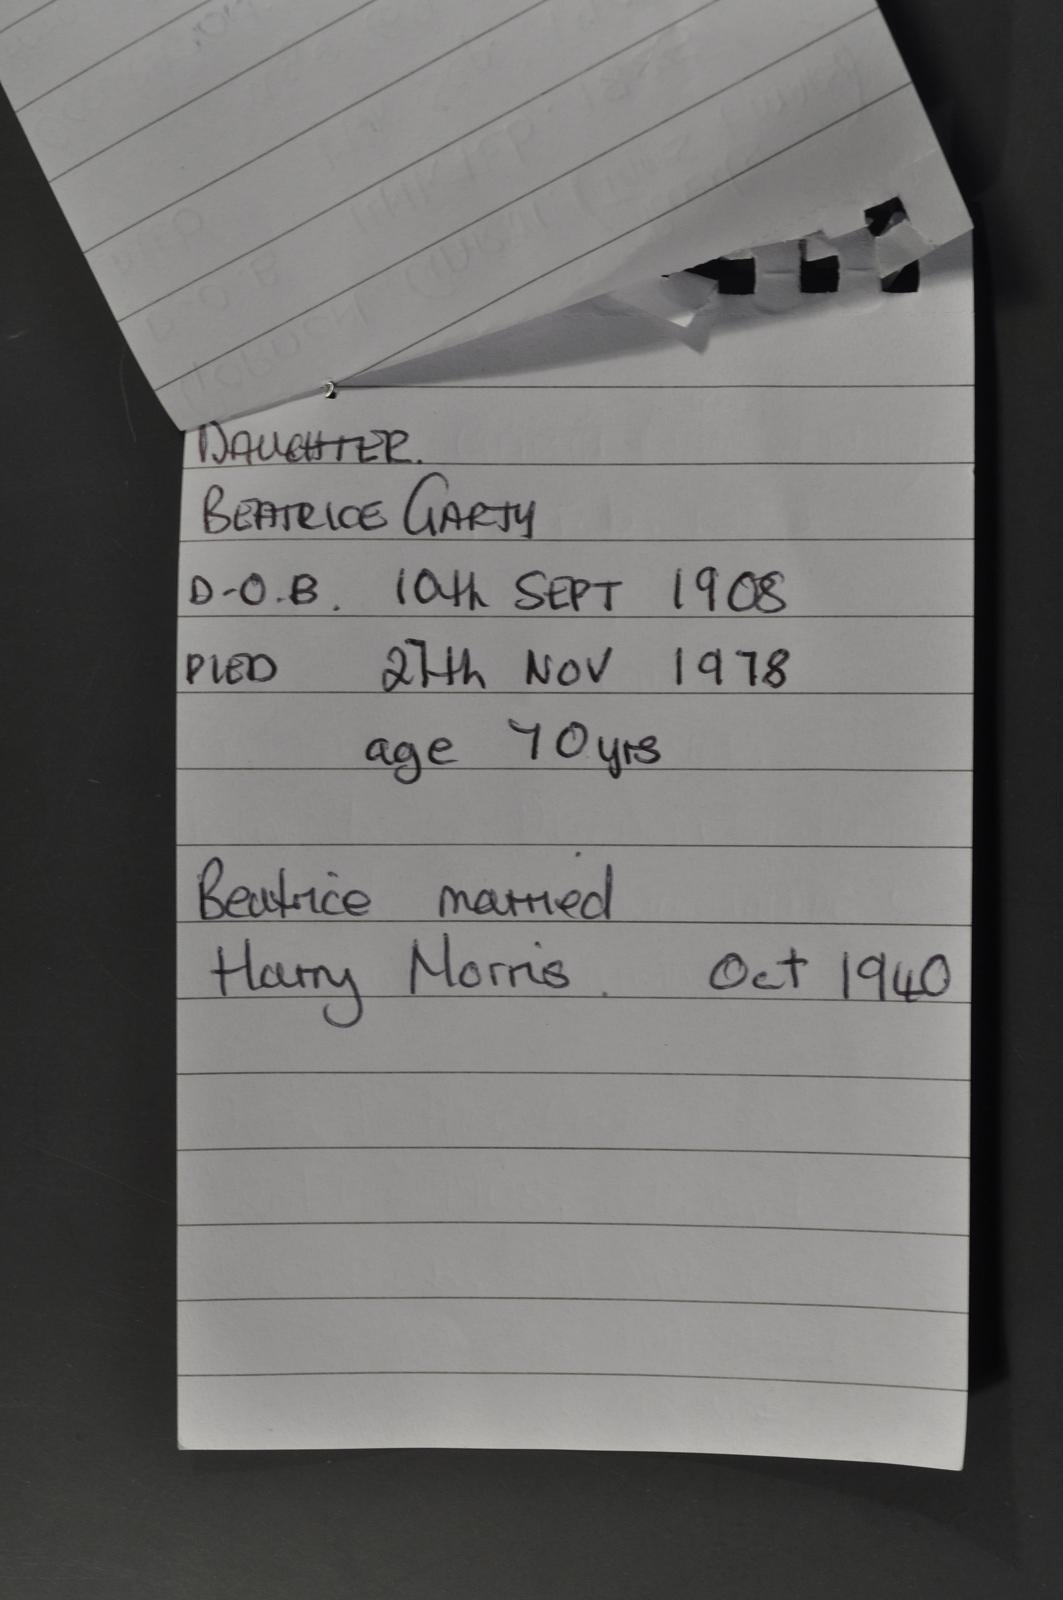 DAUGHTER.
BEATRICE GARTY
D-O.B. 10th SEPT 1908
DIED 27th NOV 1978
age 70yrs
Beatrice married
Harry Morris. Oct 1940